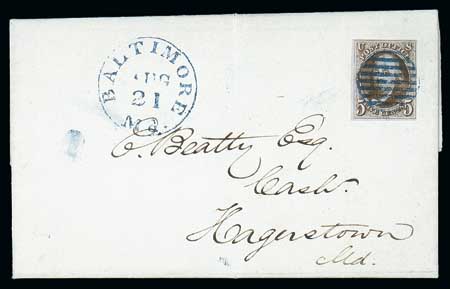 BALTIMORE
AUG
21
Md.
POST OFFICE
5 5
E. Beatty Esq.
Cash.
Hagerstown
Md.